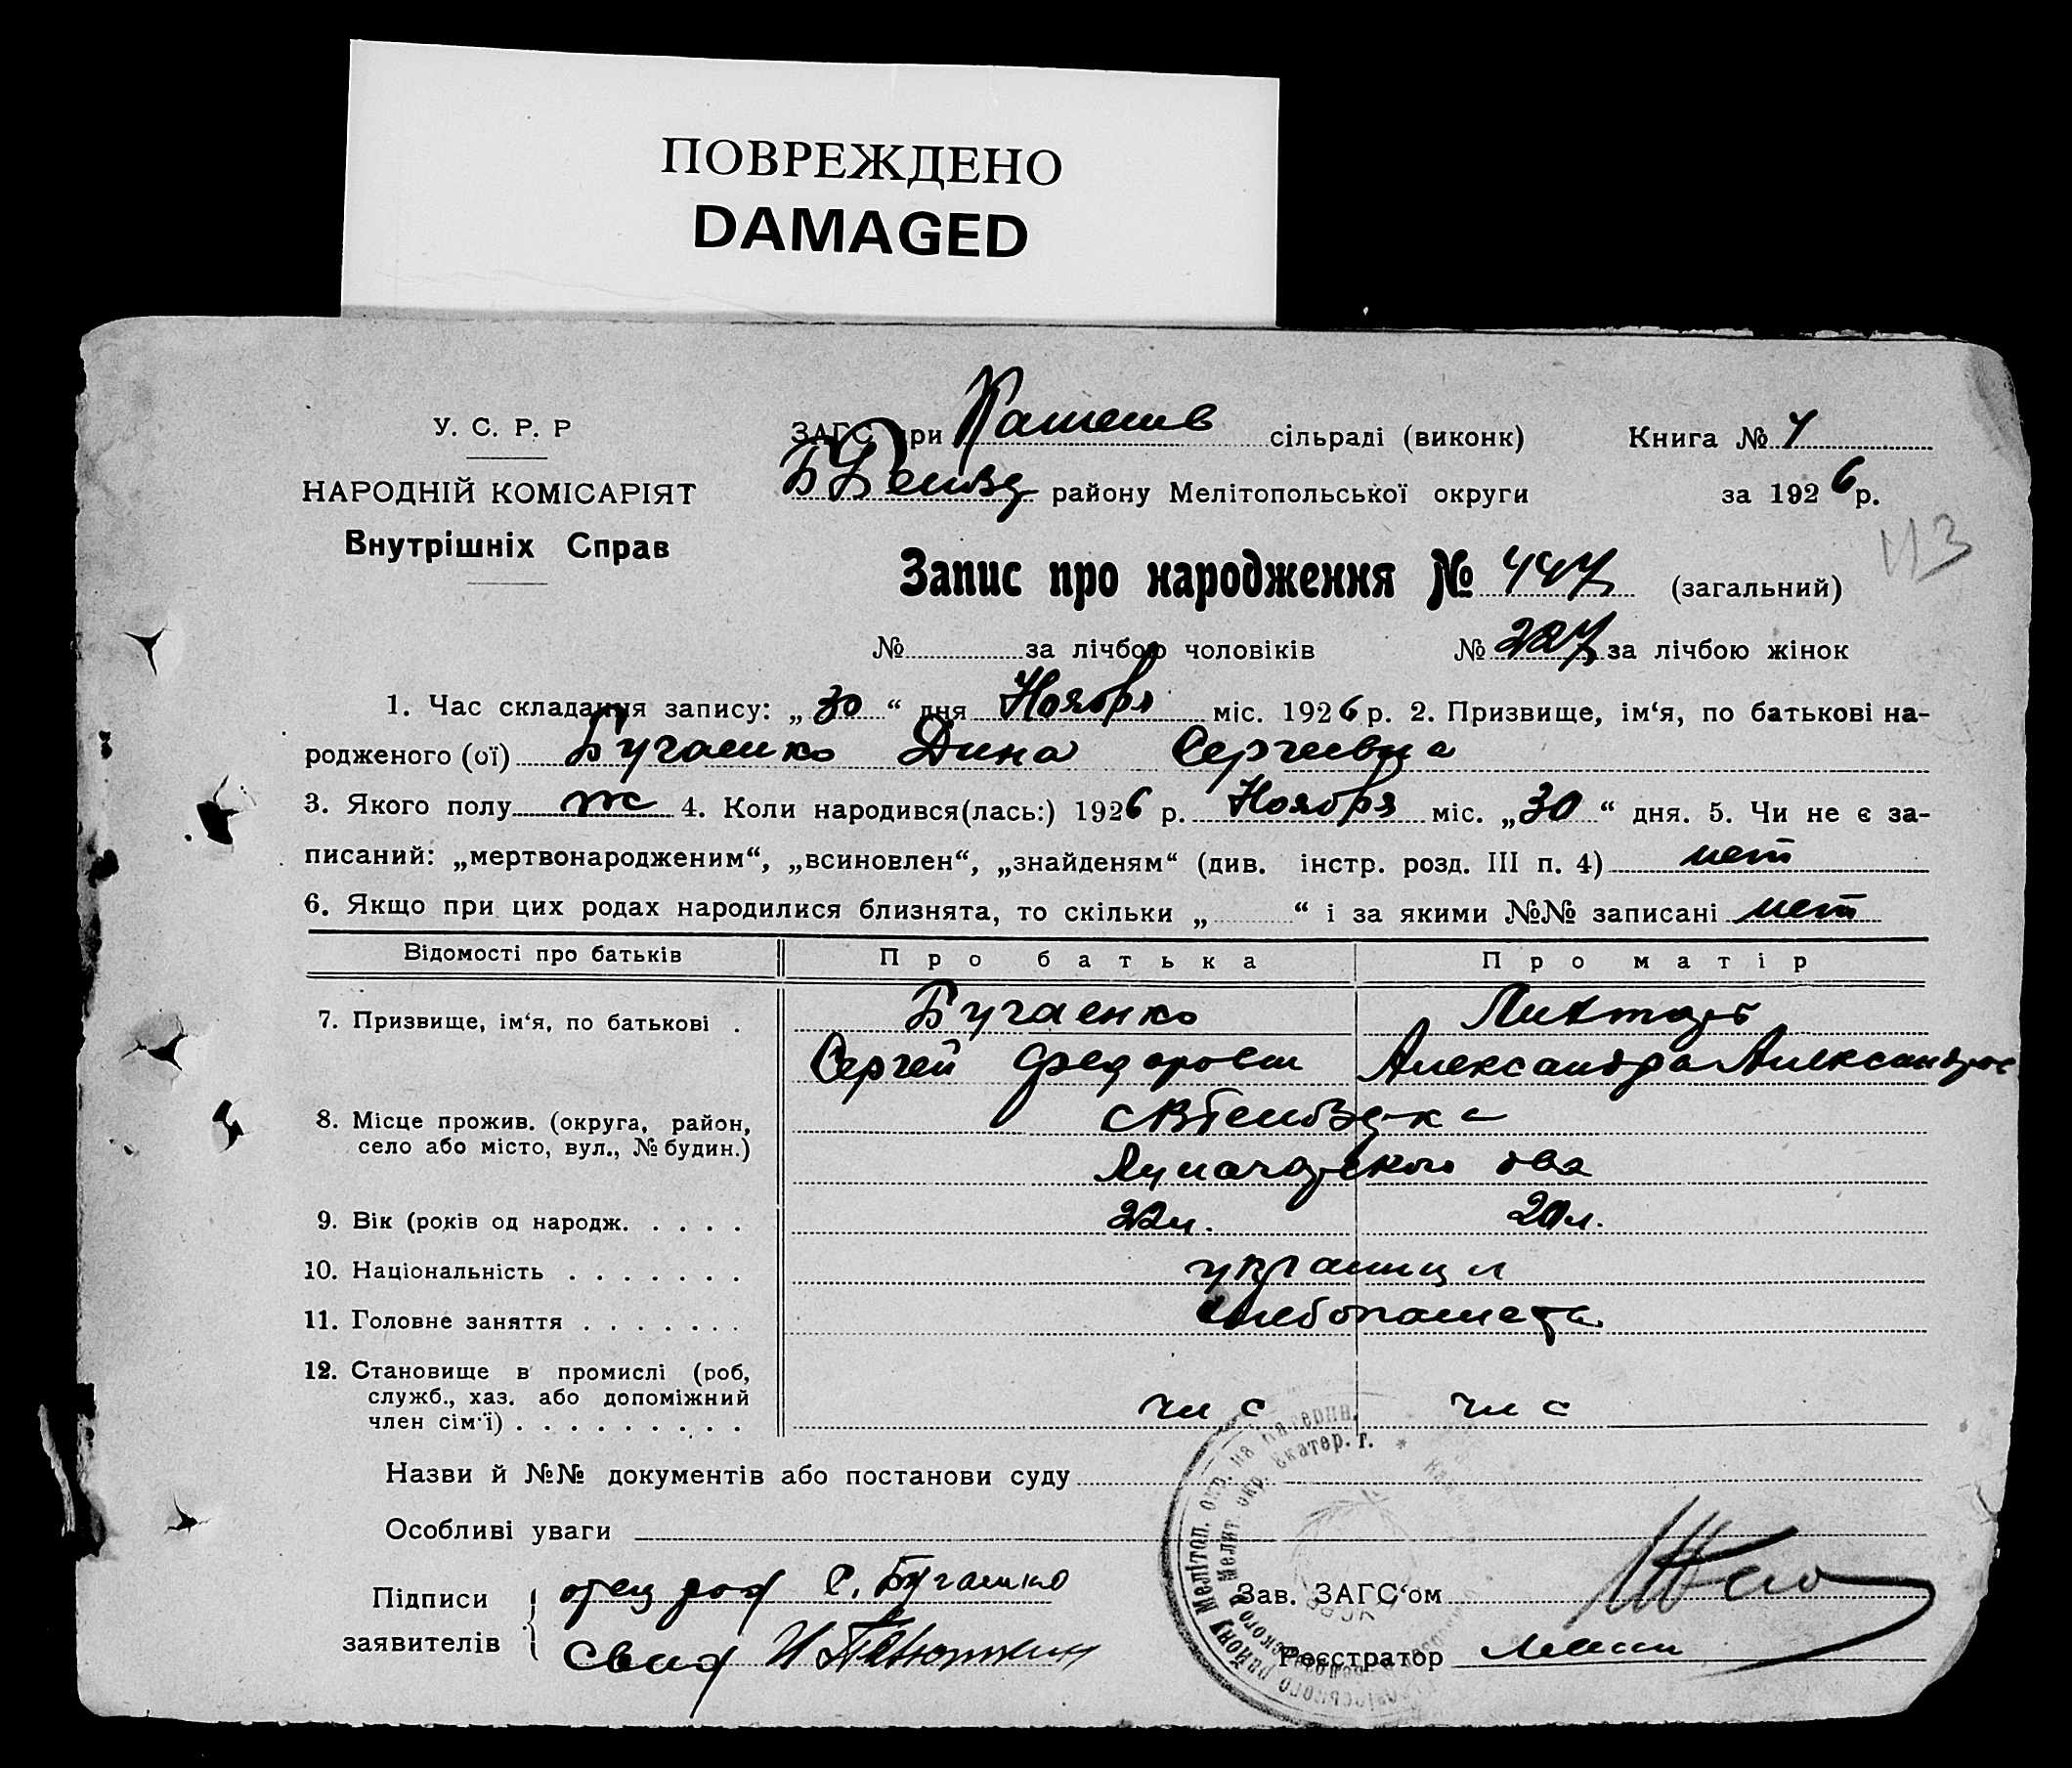 ПОВРЕЖДЕНО
DAMAGED
У. С. Р. Р
НАРОДНІЙ КОМІСАРІЯТ
Внутрішніх Справ
ЗАГС при сільраді (виконк)
району Мелітопольської округи
Книга №
за 1926 р.
113
Запис про народження № 447 (загальний)
№ за лічбою чоловіків № 227 за лічбою жінок
1. Час складання запису: „30“ дня Ноября міс. 1926 р. 2. Призвище, ім‘я, по батькові на-
родженого (ої) Бугаенко Дина Сергеевна
3. Якого полу ж 4. Коли народився(лась:) 1926 р. Ноября міс. „30“ дня. 5. Чи не є за-
писаний: „мертвонародженим“, „всиновлен“, „знайденям“ (див. інстр. розд. III п. 4) нет
6. Якщо при цих родах народилися близнята, то скільки „ “ і за якими №№ записані нет
Відомості про батьків Про батька Про матір
7. Призвище, ім‘я, по батькові . Бугаенко
Сергей Федорович Александра Александров
8. Місце прожив. (округа, район,
село або місто, вул., № будин.)
9. Вік (років од народж. . . . . 22 л. 20 л.
10. Національність . . . . . . . украинцы
11. Головне заняття . . . . . . . хлебопашество
12. Становище в промислі (роб,
служб., хаз. або допоміжний
член сім‘ї) . . . . . . . . . чл с чл с
Назви й №№ документів або постанови суду
Особливі уваги
Підписи
заявителів
отец С. Бугаенко
Свид
Зав. ЗАГС‘ом
Реєстратор